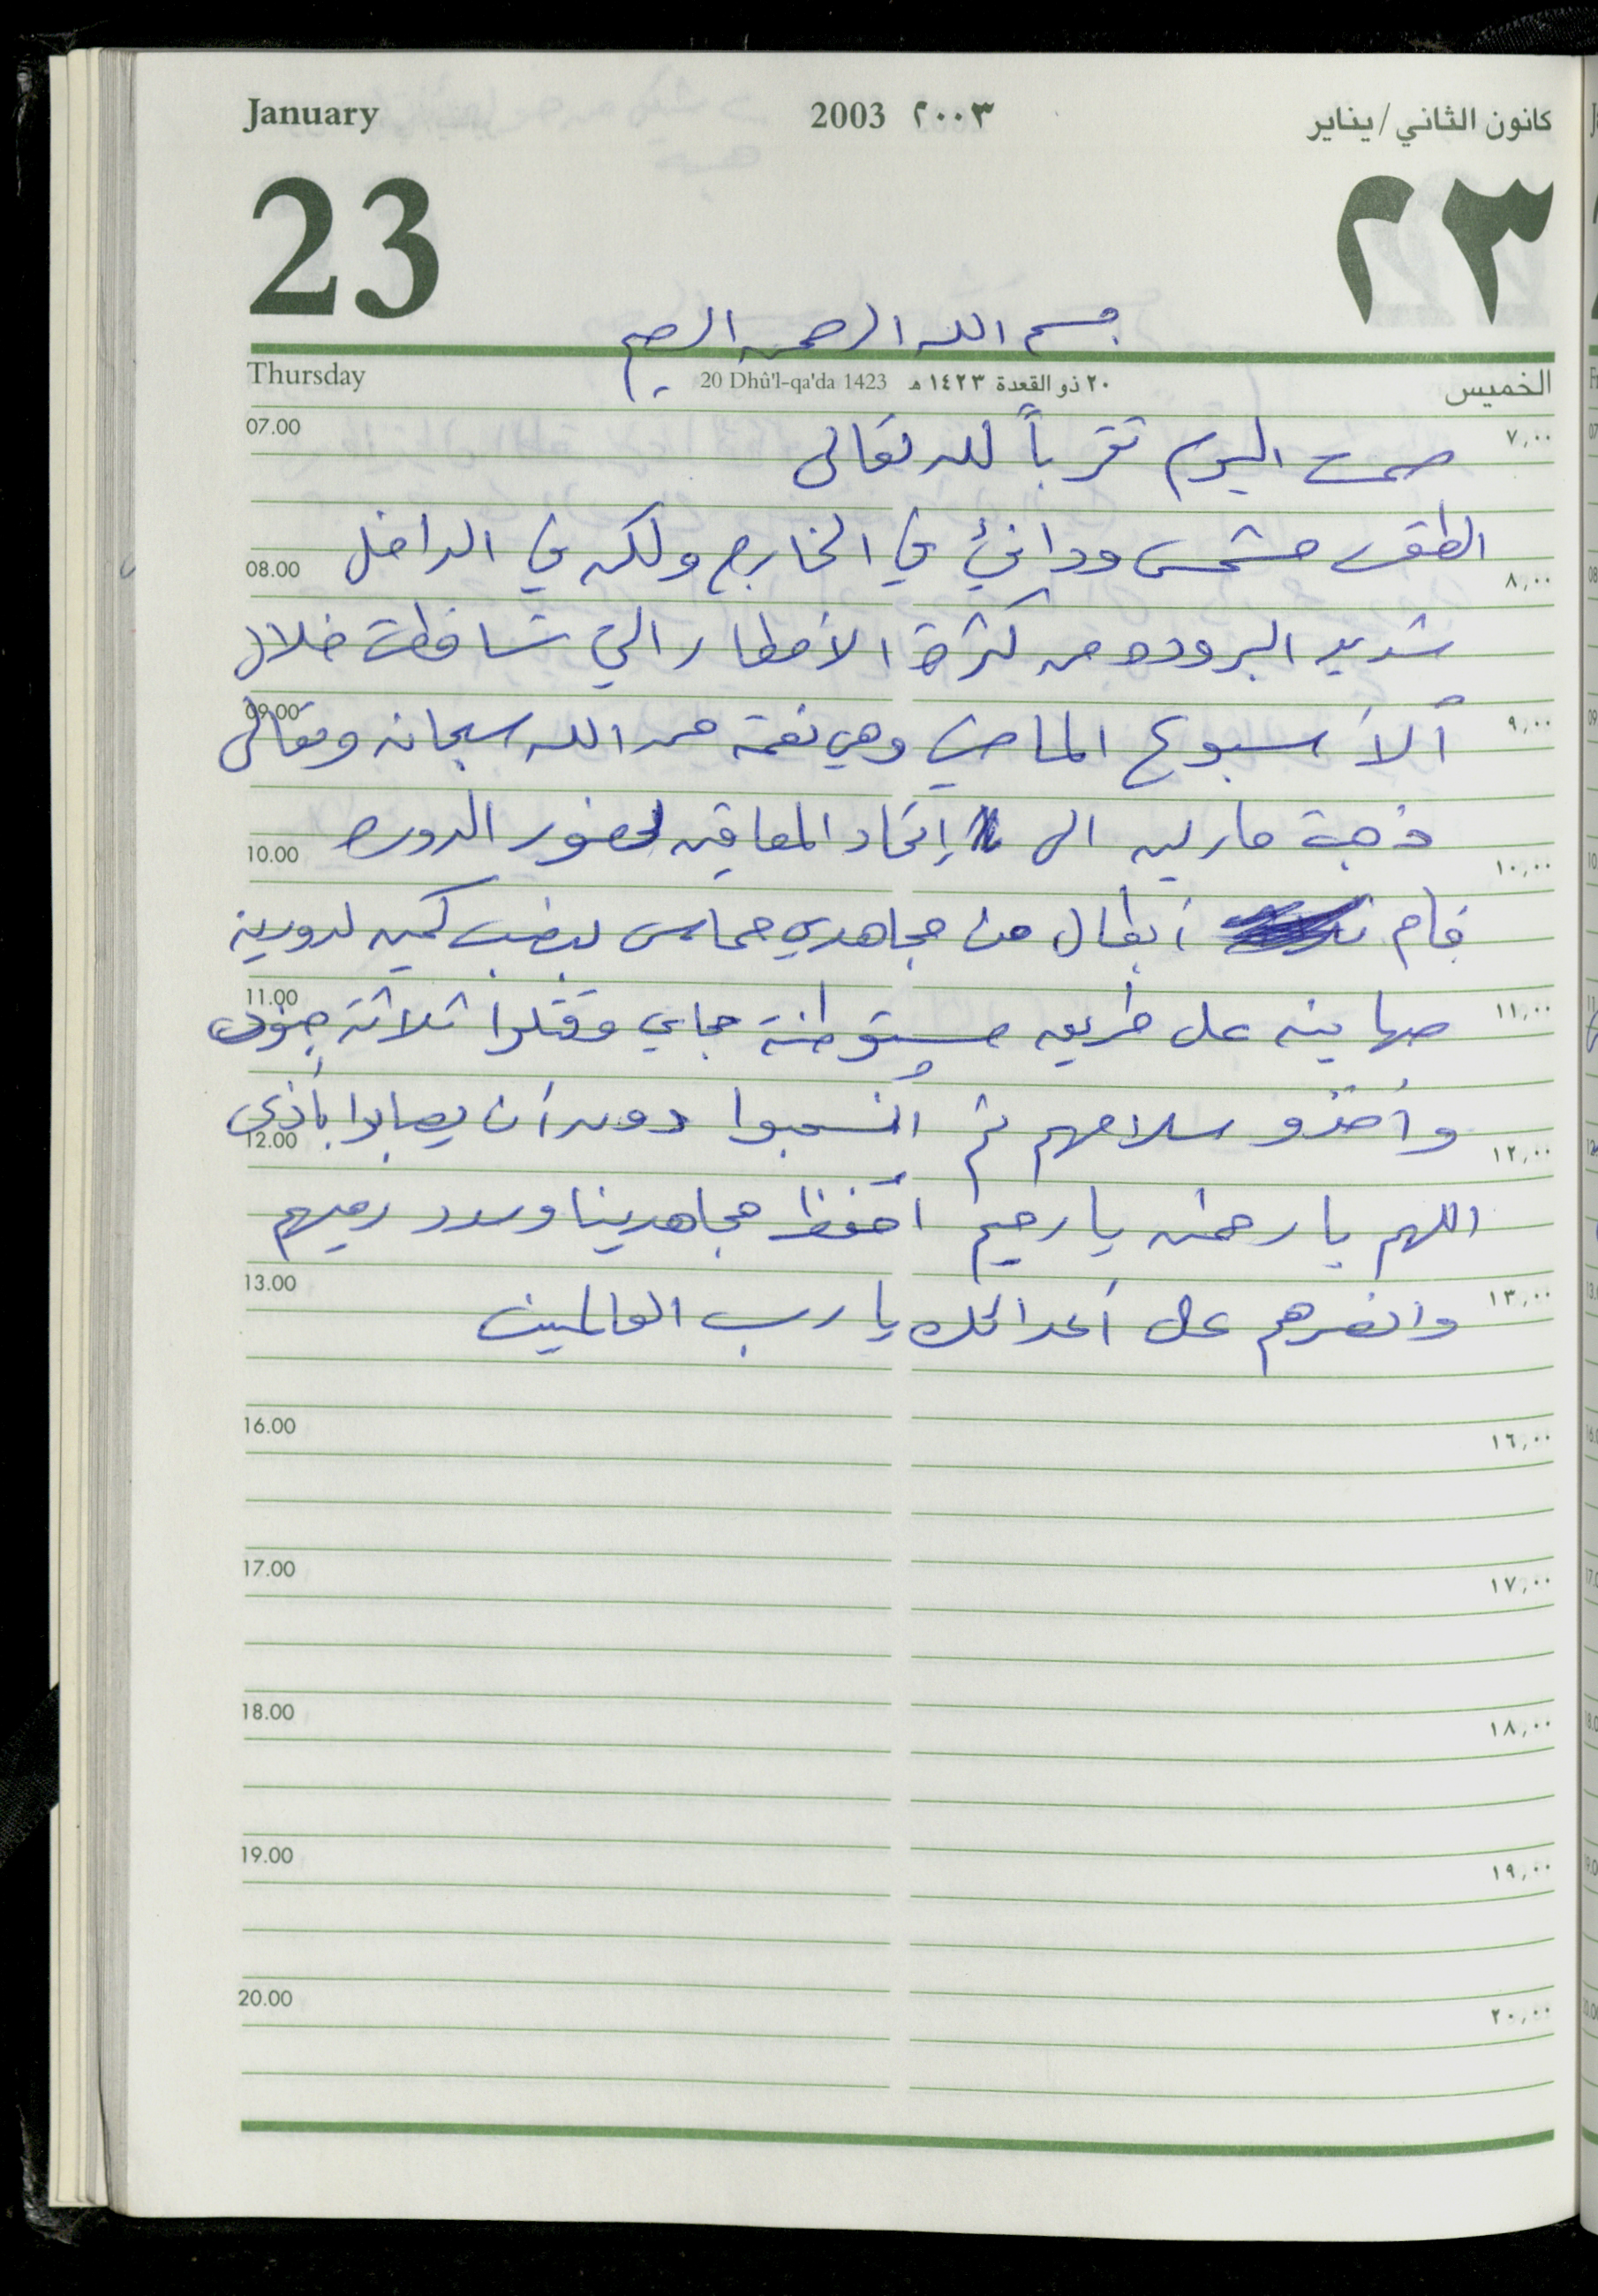 January 2003 ٢٠٠٣ كانون الثاني/يناير
23 ٢٣
بسم الله الرحمن الرحيم
Thursday 20 Dhû'l-qa'da 1423 ٢٠ ذو القعدة ١٤٢٣ هـ الخميس
07.00 صمت اليوم تقرباً لله تعالى ٧,٠٠
الطقس مشمس ودافئ في الخارج ولكن في الداخل
08.00 ٨,٠٠
شديد البرودة من كثرة الأمطار التي تساقطت خلال
09.00 ألأسبوع الماضي وهي نعمة من الله سبحانه وتعالى ٩,٠٠
ذهبت مارلين الى إتحاد المعاقين لحضور الدورة
10.00 ١٠,٠٠
قام أبطال من مجاهدي حماس بنصب كمين لدورية
11.00 صهاينه على طريق مستوطنة حجاي وقتلوا ثلاثة جنود ١١,٠٠
وأخذو سلاحهم ثم أنسحبوا دون أن يصابوا بأذى
12.00 ١٢,٠٠
اللهم يا رحمن يا رحيم احفظ مجاهدينا وسدد رميهم
13.00 وانصرهم على أعدائك يا رب العالمين ١٣,٠٠
16.00 ١٦,٠٠
17.00 ١٧,٠٠
18.00 ١٨,٠٠
19.00 ١٩,٠٠
20.00 ٢٠,٠٠